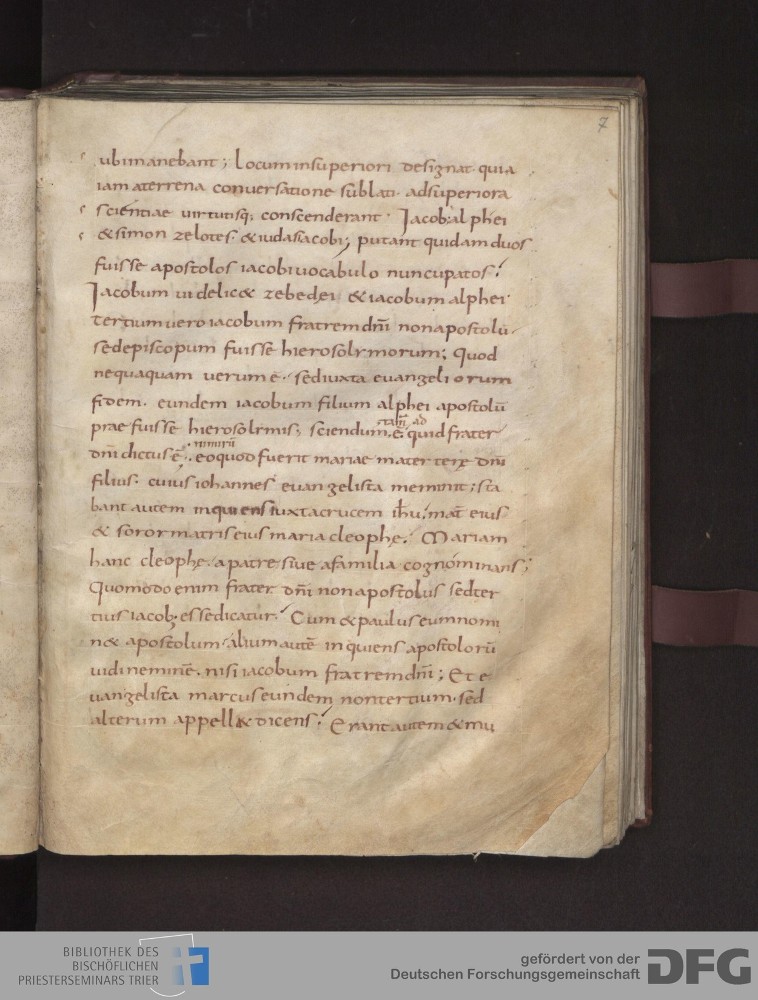 7
ubi manebant; Locum insuperiori designat. quia
iam aterrena conuersatione sublati. adsuperiora
scientiae uirtutisq; conscenderant. Jacob; alphei
& simon zelotes. & iudas iacobi; putant quidam duos
fuisse apostolos iacobi uocabulo nuncupatos.
Jacobum uidelic& zebedei & iacobum alphei.
tertium uero iacobum fratrem dn̄i non apostolū.
sed episcopum fuisse hierosolymorum; Quod
nequaquam uerum ē. sed iuxta euangeliorum
fidem. eundem iacobum filium alphei apostolū
prae fuisse hierosolymis; sciendum ē. quid frater
dn̄i dictus ē. nimirū eo quod fuerit mariae materterę dn̄i
filius. cuius iohannes euangelista meminit; sta
bant autem inquiens iuxta crucem ih̄u. mat̄ eius
& soror matris eius maria cleophę. Mariam
hanc cleophę. apatre siue afamilia cognominans;
Quomodo enim frater dn̄i non apostolus sed ter
tius iacob; esse dicatur. Cum & paulus eum nomi
n& apostolum. alium autē inquiens apostolorū
uidi neminē. nisi iacobum fratrem dn̄i; Et e
uangelista marcus eundem non tertium. sed
alterum appell& dicens. Erant autem & mu
BIBLIOTHEK DES
BISCHÖFLICHEN
PRIESTERSEMINARS TRIER
gefördert von der
Deutschen Forschungsgemeinschaft
DFG